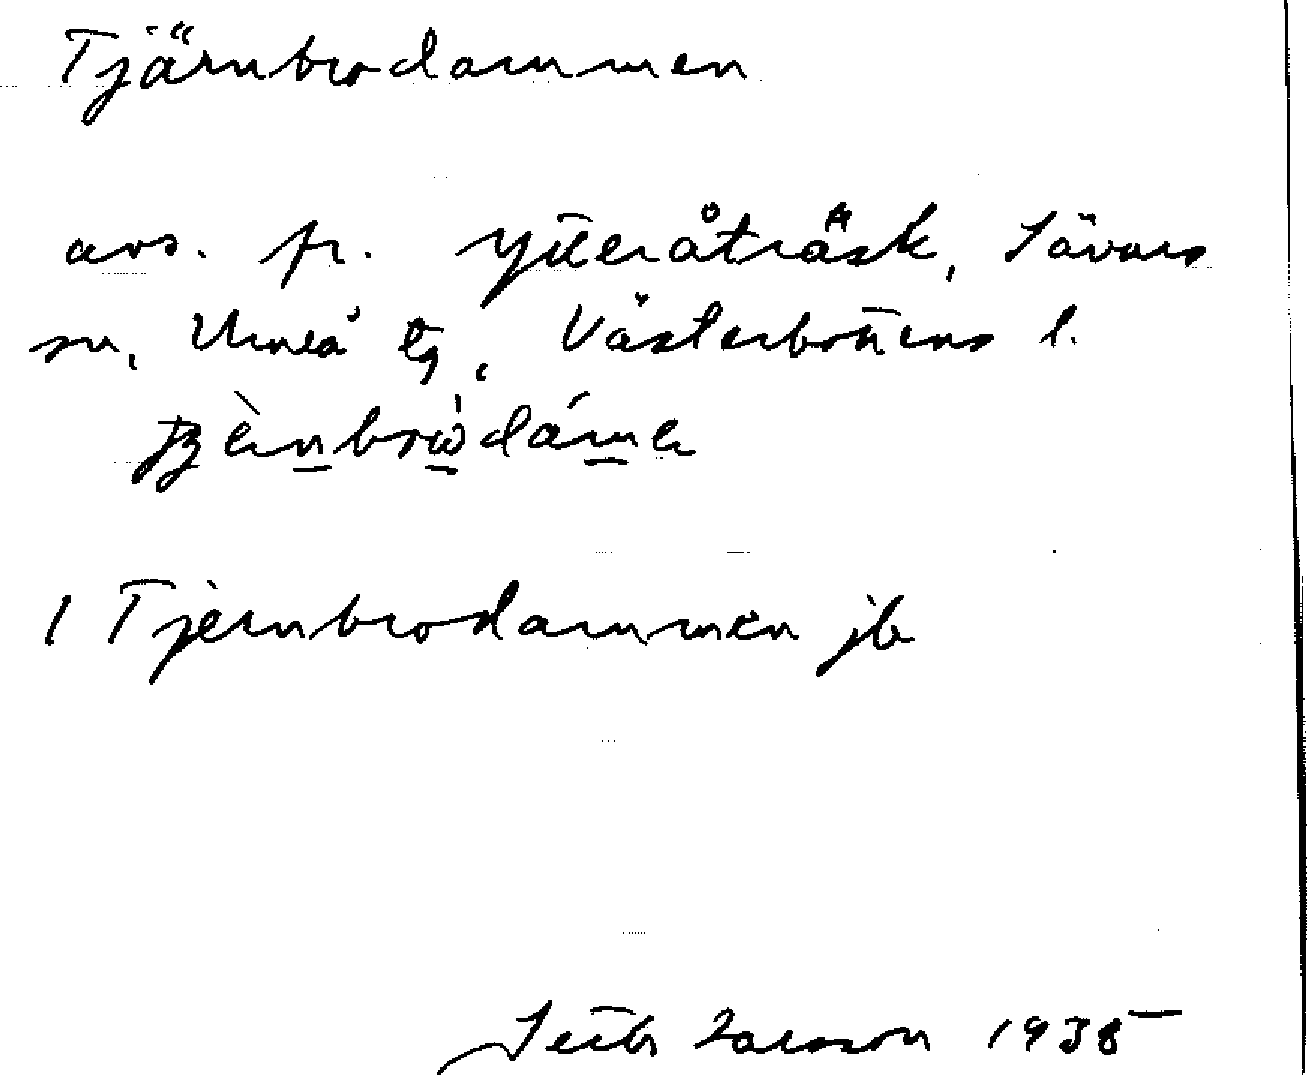 Tjärnbrodammen
avs. fr. Ytteråträsk, Sävars
sn, Umeå tg, Västerbottens l.
1 Tjernbrodammen jb
Larsson 1935